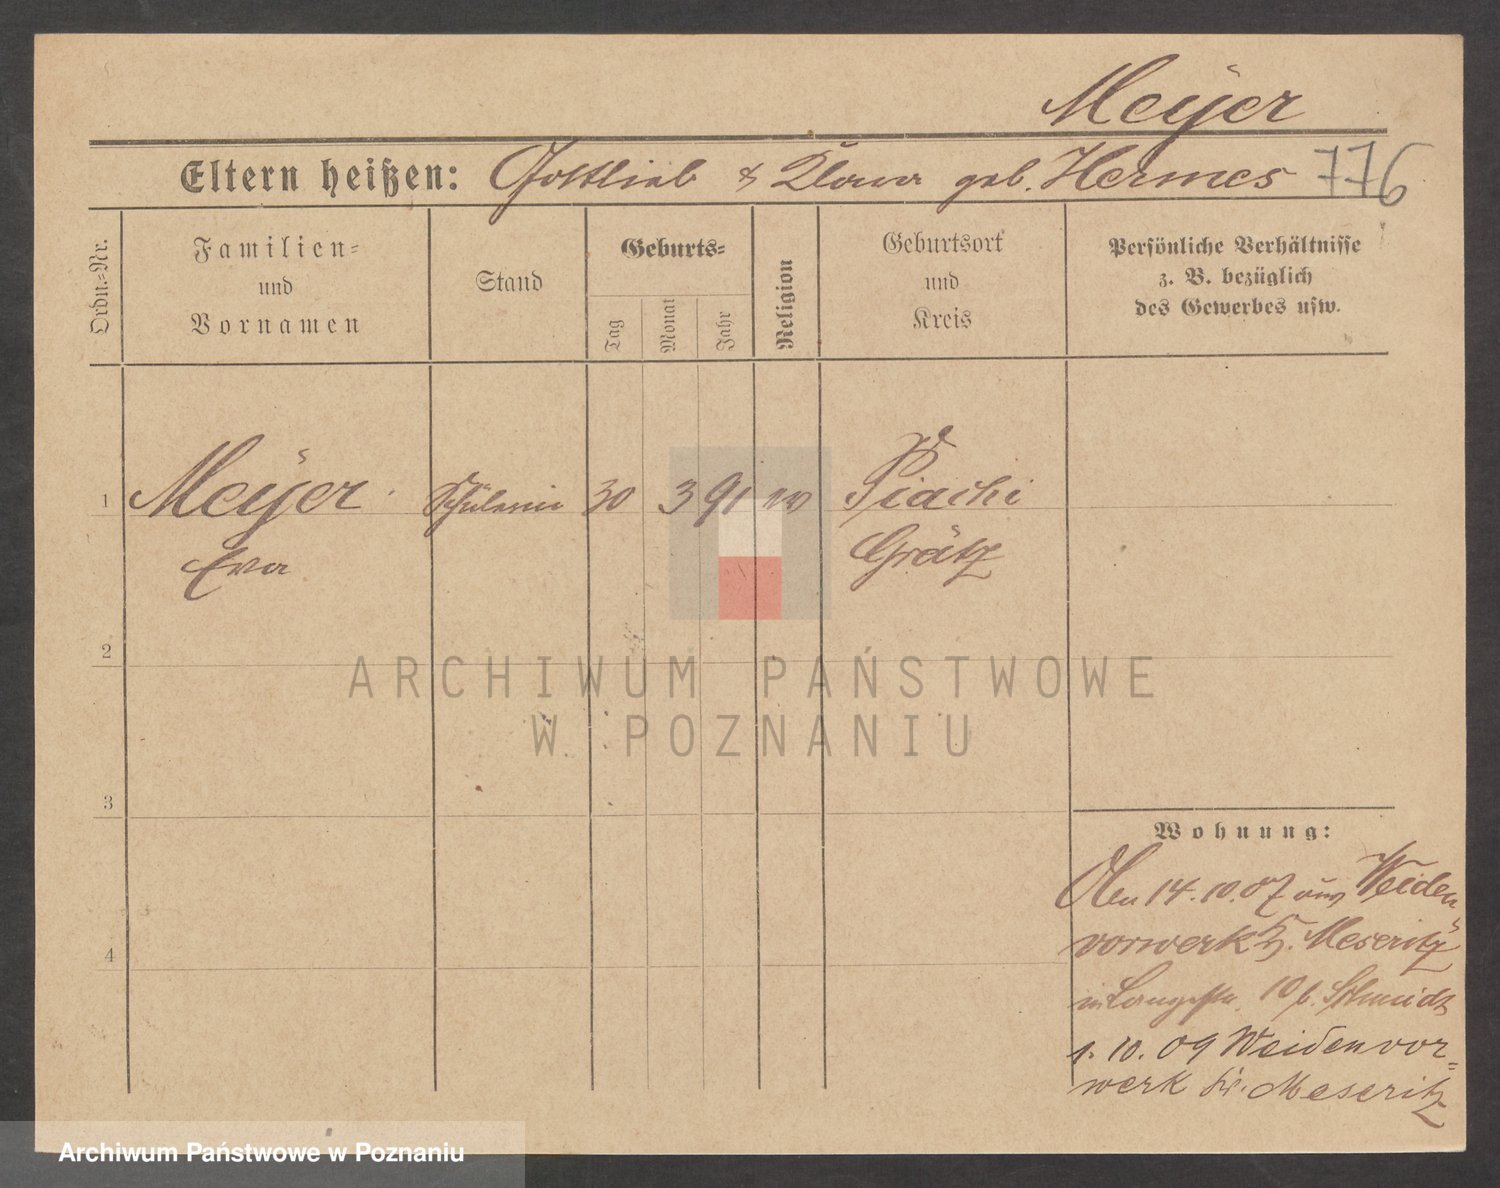 Meÿer
Eltern heißen: Gottlieb & Klara geb. Hermes 776
Ordn.=Nr.
Familien=
und
Vornamen
Stand
Geburts=
Tag
Monat
Jahr
Religion
Geburtsort
und
Kreis
Persönliche Verhältnisse
z. B. bezüglich
des Gewerbes usw.
1 Meÿer Schülerin 30 3 91 ev Piaski
Eva Grätz
2
ARCHIWUM PAŃSTWOWE
W POZNANIU
3
Wohnung:
Am 14.10.07 aus Weiden
4 vorwerk Kr. Meseritz
in Langestr. 10 b. Schmidt
1. 10. 09 Weidenvor=
werk Kr. Meseritz
Archiwum Państwowe w Poznaniu